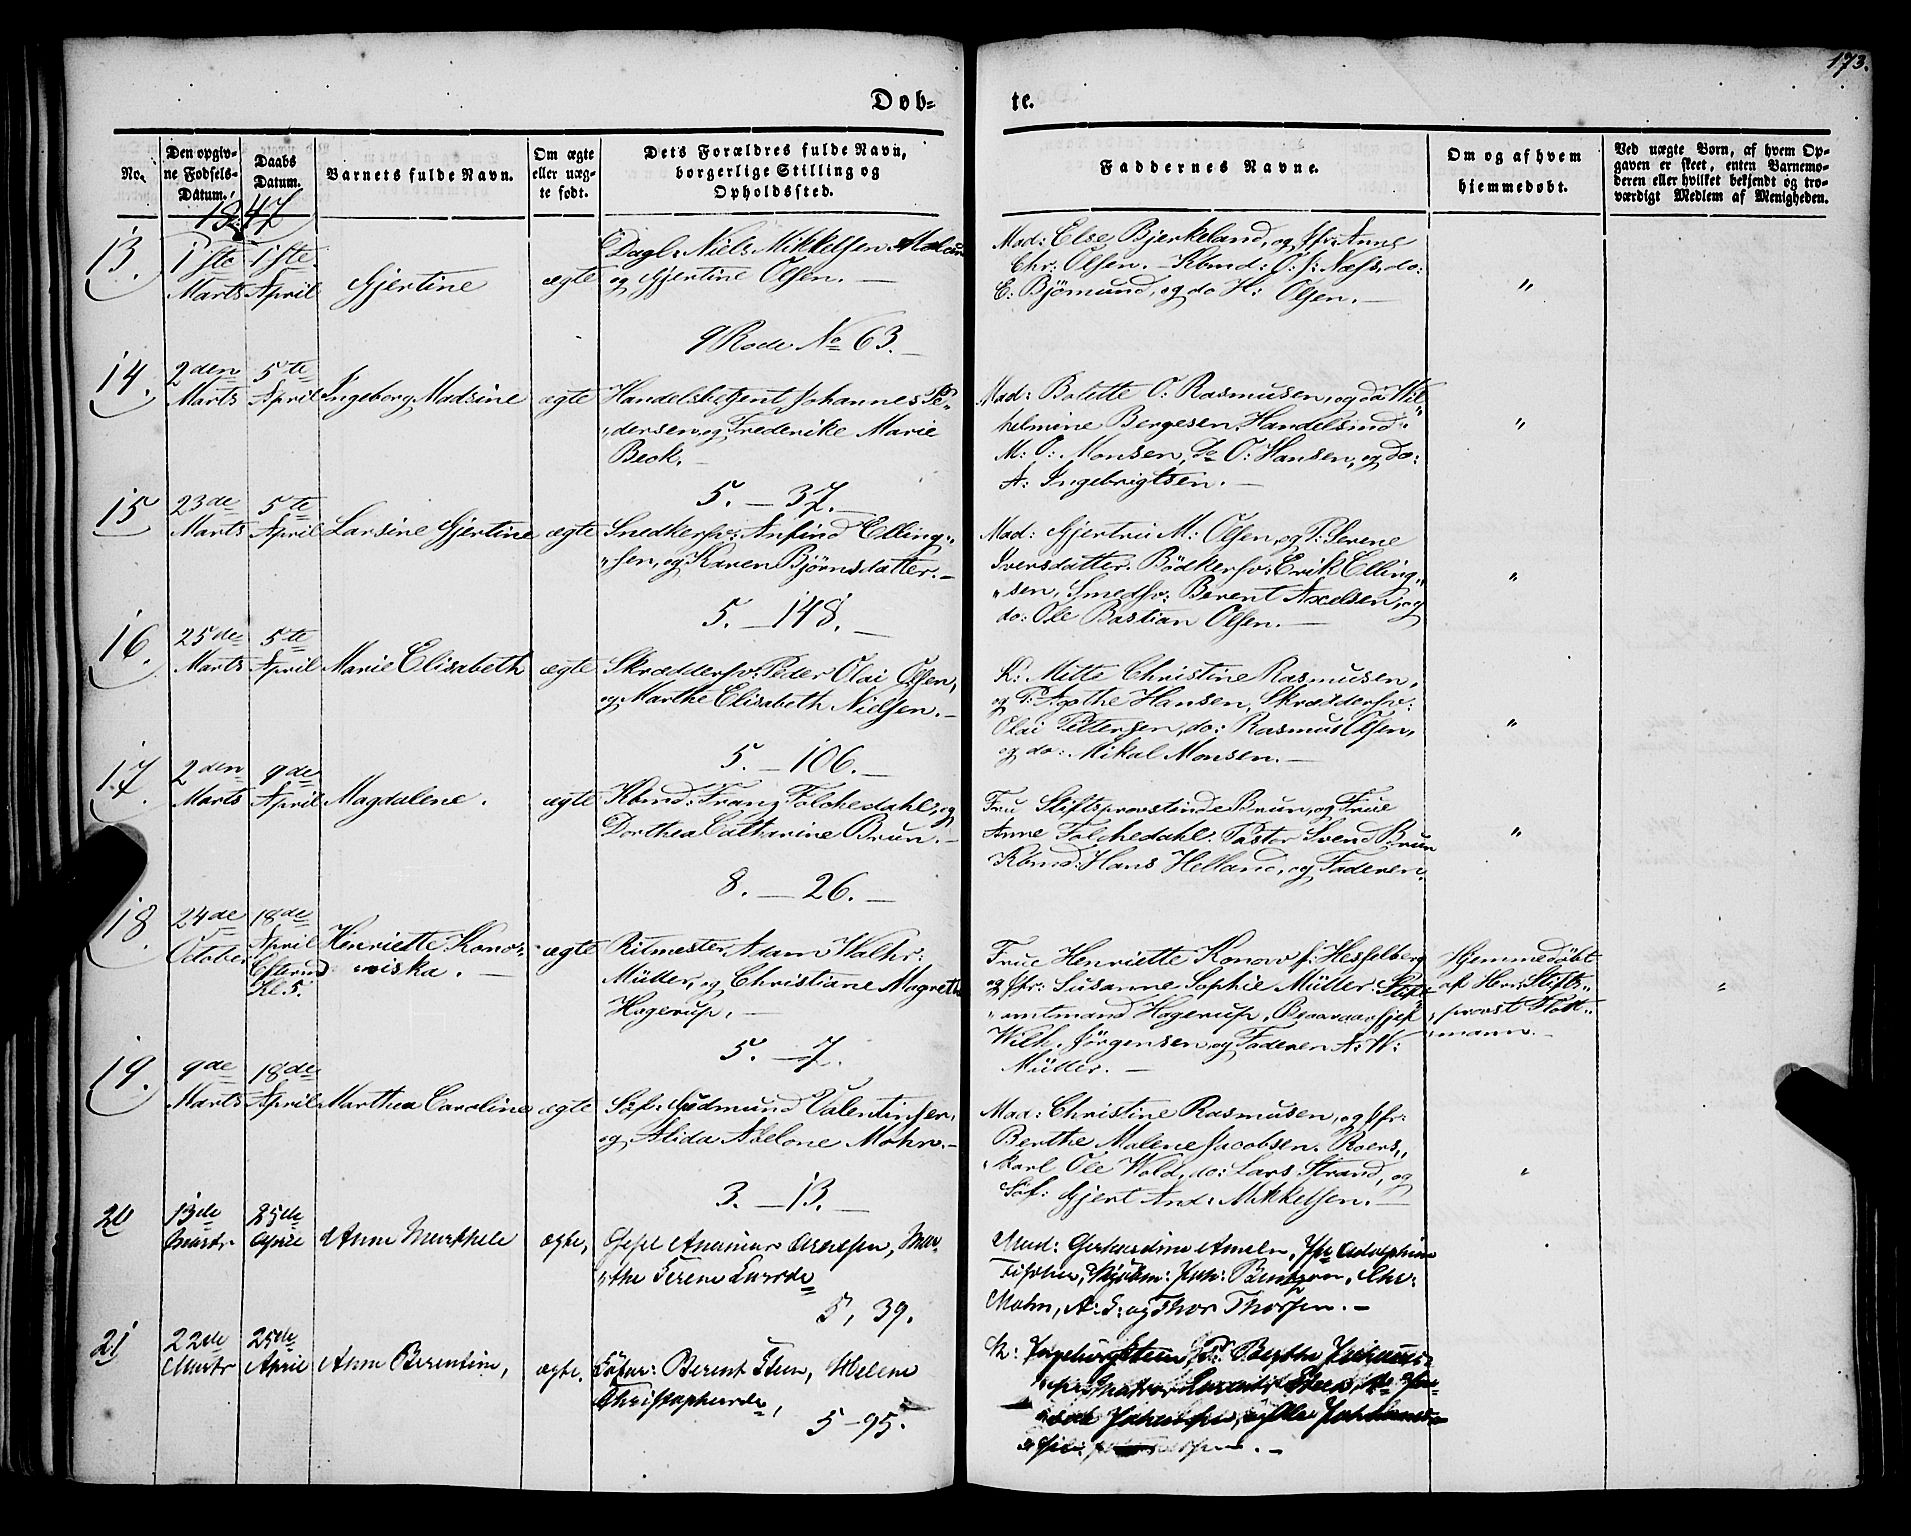 173.
Døb-
te.
No.
Den opgiv-
ne Fødsels-
Datum.
Daabs
Datum.
Barnets fulde Navn.
Om ægte
eller uæg-
te født.
Dets Forældres fulde Navn,
borgerlige Stilling og
Opholdssted.
Faddernes Navne.
Om og af hvem
hjemmedøbt.
Ved uægte Born, af hvem Op-
gaven er skeet, enten Barnemo-
deren eller hvilket bekjendt og tro-
værdigt Medlem af Menigheden.
1847
13.
1ste
Marts
1ste
April
Gjertine
ægte
Dagl: Niels Mikkelsen
og Gjertine Olsen. —
9 Rode No 63. —
Mad: Else Bjerkeland, og Jfr: Anne
Chr: Olsen. — Kbmd: O: J: Næss, do:
E: Bjömund, og do H: Olsen. —
"
14.
2den
Marts
5te
April
Ingeborg Madsine
ægte
Handelsbetjent Johannes Pe-
"dersen, og Frederike Marie
Beck. —
5. — 37. —
Mad: Bolette O: Rasmusen, og do: Wil-
helmine Bergesen. Handelsmd:
M: O: Monsen, do O: Hansen, og do:
A: Ingebrigtsen. —
"
15
23de
Marts
5te
April
Larsine Gjertine
ægte
Snedkersv: Anfind Elling-
"sen, og Karen Bjørnsdatter. —
5. — 148. —
Mad: Gjertru M: Olsen, og P: Serene
Iversdatter. Bödkersv: Erik Elling-
"sen, Smedsv: Berent Axelsen, og
do: Ole Bastian Olsen. —
"
16.
25de
Marts
5te
April
Marie Elisabeth
ægte
Skræddersv: Peder Olai Olsen,
og Marthe Elisabeth Nielsen. —
5. — 106. —
K: Mitte Christine Rasmusen,
og P: Agothe Hansen, Skræddersv:
Olai Pettersen, do: Rasmus Olsen,
og do: Mikal Monsen. —
"
17.
2den
Marts
9de
April
Magdalene.
ægte
Kbmd: Franz Folchedahl, og
Dorthea Catharine Brun. —
8. — 26. —
Fru Stiftsprovstinde Brun, og Frue
Anne Folchedahl. Pastor Svend Brun
Kbmd: Hans Helland, og Faderen.
"
18.
24de
October
18de
April
Efterm:
Kl. 5.
Henriette Kono-
wiska. —
ægte
Ritmester Adam Walhr:
Müller, og Christiane Magrethe
Hagerup. —
5. — 7.
Frue Henriette Konow f: Hesselberg
og Jfr: Susanne Sophie Müller. Stift-
"amtmand Hagerup,
Wilh. Jörgensen, og Faderen A: W:
Müller. —
Hjemmedöbt
af Herr Stifts-
provst
mann. —
"
19.
9de
Marts
18de
April
Marthea Caroline
ægte
Söf: Gudmund Valentinsen,
og Alida Abelone Mohn. —
3. — 13. —
Mad: Christine Rasmusen, og Jfr:
Berthe Malene Jacobsen. Roers-
karl Ole Wold, do: Lars Strand, og
Söf: Gjert And: Mikkelsen. —
"
20
13de
Marts
25de
April
Anne
ægte,
"the Serene
5, 39.
Mad:
Mohn, A: S: og Thor Thorsen. —
21
22de
Marts
25de
April
Anne Berentine,
ægte.
Berent Steen, Helene
5 — 95.
K: Ingeborg Steen, P: Berthe